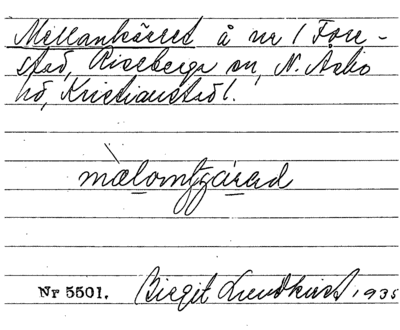 Mellankärret å nr 1 Före-
stad, Riseberga sn, N. Åsbo
hd, Kristianstad l.
mælomtzárad
Nr 5501. Birgit Lundkvist, 1935